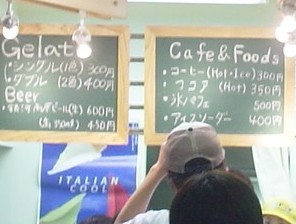 Gelat
・シングル(1色) 300円
・ダブル (2色) 400円
Beer
600円
(缶350ml) 450円
Cafe & Foods
・コーヒー (Hot・Ice) 300円
・ココア (Hot) 350円
・氷パフェ 500円
・アイスソーダー 400円
ITALIAN
COOL